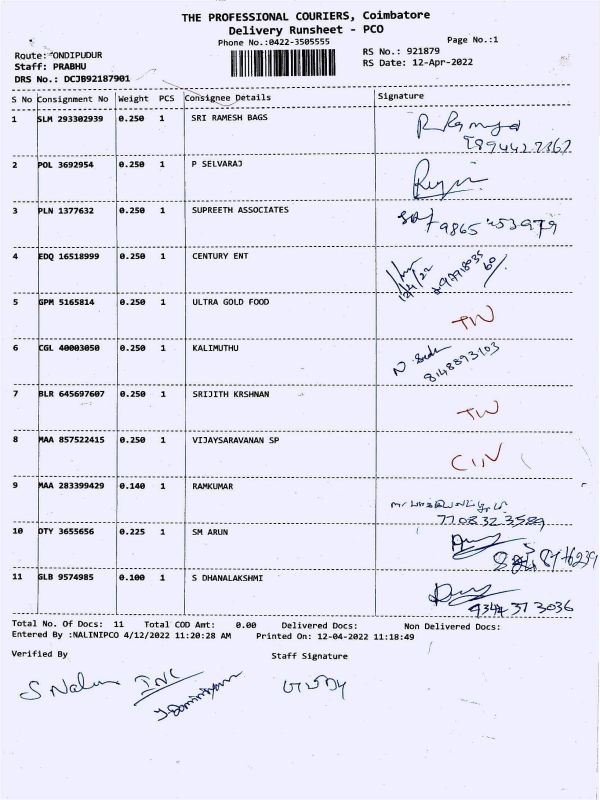 THE PROFESSIONAL COURIERS, Coimbatore
Delivery Runsheet - PCO
Phone No.:0422-3505555
Page No.:1
Route: ONDIPUDUR
Staff: PRABHU
DRS No.: DCJB92187901
RS No.: 921879
RS Date: 12-Apr-2022
S No Consignment No Weight PCS Consignee Details Signature
1 SLM 293302939 0.250 1 SRI RAMESH BAGS
2 POL 3692954 0.250 1 P SELVARAJ
3 PLN 1377632 0.250 1 SUPREETH ASSOCIATES
9865453979
4 EDQ 16518999 0.250 1 CENTURY ENT
12/4/22
5 GPM 5165814 0.250 1 ULTRA GOLD FOOD
6 CGL 40003050 0.250 1 KALIMUTHU
8148893103
7 BLR 645697607 0.250 1 SRIJITH KRSHNAN
8 MAA 857522415 0.250 1 VIJAYSARAVANAN SP
9 MAA 283399429 0.140 1 RAMKUMAR
7708323589
10 DTY 3655656 0.225 1 SM ARUN
11 GLB 9574985 0.100 1 S DHANALAKSHMI
9344373036
Total No. Of Docs: 11 Total COD Amt: 0.00 Delivered Docs: Non Delivered Docs:
Entered By :NALINIPCO 4/12/2022 11:20:28 AM Printed On: 12-04-2022 11:18:49
Verified By Staff Signature